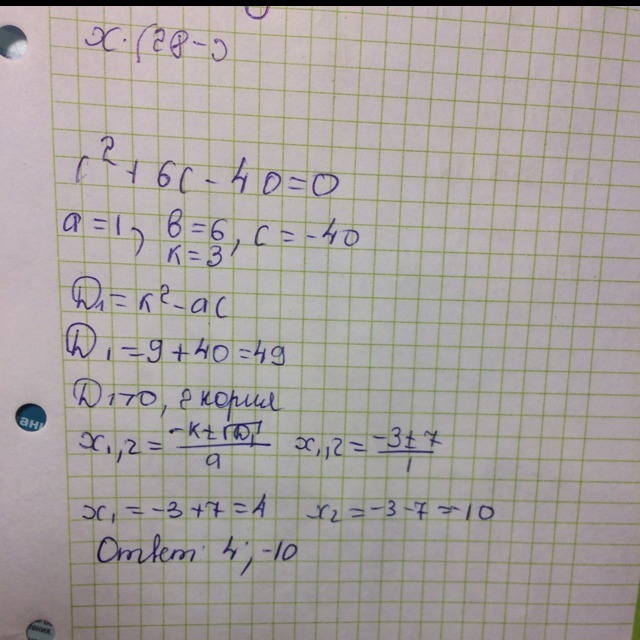 x·(28-
c² + 6c - 40 = 0
a = 1, в = 6, c = -40
к = 3
D₁ = к² - ac
D₁ = 9 + 40 = 49
D₁ > 0, 2 корня
x₁,₂ = (-к ± √D₁)/a x₁,₂ = (-3 ± 7)/1
x₁ = -3 + 7 = 4 x₂ = -3 - 7 = -10
Ответ: 4; -10